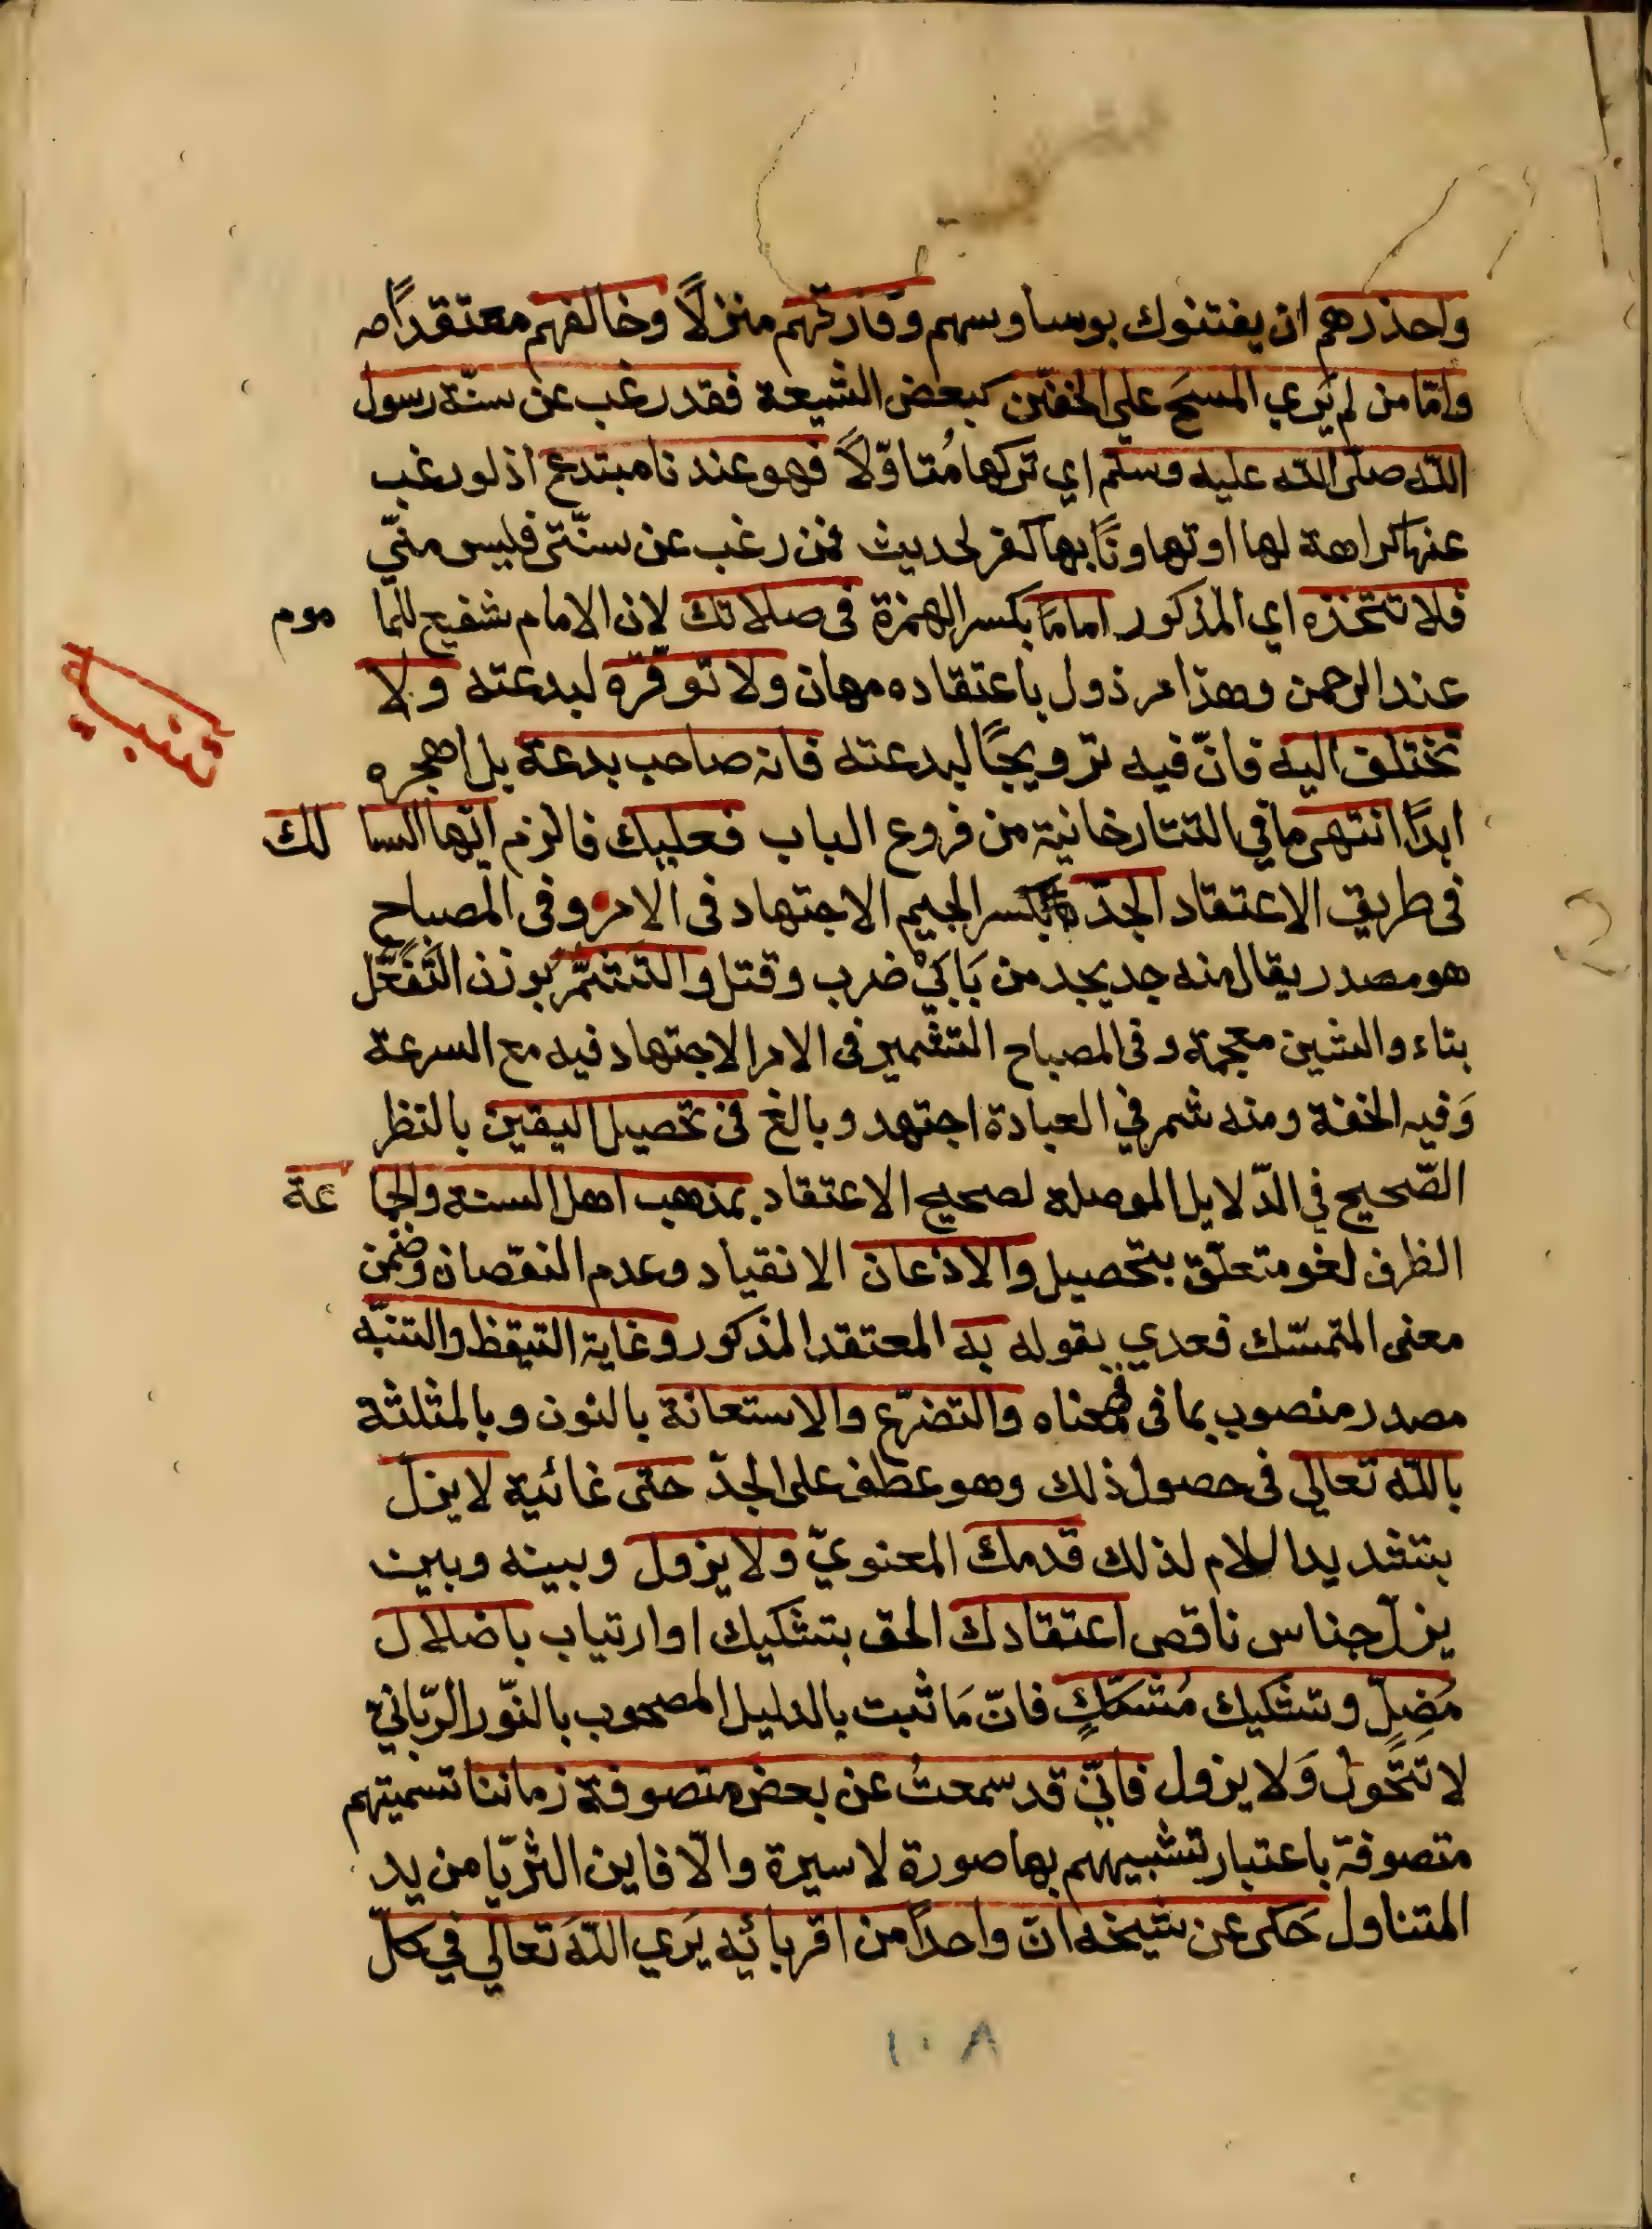 واحذرهم ان يفتنوك بوساوسهم وفارقهم منزلًا وخالفهم معتقدًا
وامّا من لم يَري المسحَ علي الخفّين كبعض الشيعة فقد رغب عن سنّة رسول
اللّه صلّى اللّه عليه وسلّم اي تركها مُتاوّلًا فهو عندنا مبتدع اذ لو رغب
عنها كراهة لها او تهاونًا بها كفر لحديث فمن رغب عن سنّتى فليس منّي
فلا تتخذه اي المذكور امامًا بكسر الهمزة فى صلاتك لان الامام شفيع للما موم
عند الرحمن وهذا مرذول باعتقاده مهان ولا توقّره لبدعته ولا
تنبيه
تختلف اليه فانّ فيه ترويجًا لبدعته فانه صاحب بدعة بل اهجره
ابدًا انتهى ما في التتارخانية من فروع الباب فعليك فالزم ايّها السا لك
فى طريق الاعتقاد الجدّ بكسر الجيم الاجتهاد فى الامر وفى المصباح
هو مصدر يقال منه جد يجد من بَابَيْ ضرب وقتل والتشمّر بوزن التَّفَعُّل
بتاء والشين معجمة وفى المصباح التشمير فى الامر الاجتهاد فيه مع السرعة
وَفيه الخفة ومنه شمر في العبادة اجتهد وبالغ فى تحصيل اليقين بالنظر
الصّحيح في الدّلايل الموصلة لصحيح الاعتقاد بمذهب اهل السنة والجما عة
الظرف لغو متعلّق بتحصيل والاذعان الانقياد وعدم النقصان وضمن
معنى المتمسّك فعدي بقوله به المعتقد المذكور وغاية التيقظ والتنبّه
مصدر منصوب بما فى معناه والتضرّع والاستعانة بالنون وبالمثلثة
باللّه تعالى فى حصول ذلك وهو عطف على الجدّ حتى غائية لا يزلّ
بتشديد اللام لذلك قدمك المعنويّ ولا يزول وبينه وبين
يزلّ جناس ناقص اعتقادك الحق بتشكيك او ارتياب باضلال
مُضِلٍّ وتشكيك مُشكّكٍ فانّ مَا ثبت بالدليل المصحوب بالنّور الرّبّانيّ
لا تتَّحول وَلا يزول فانّي قد سمعتُ عن بعض متصوفة زماننا تسميتهم
متصوفة باعتبار تشبيههم بها صورة لا سيرة والّا فاين الثريّا من يد
المتناول حَكى عن شيخه انّ واحدًا من اقربائه يَري اللّهَ تعالي في كلّ
١٠٨